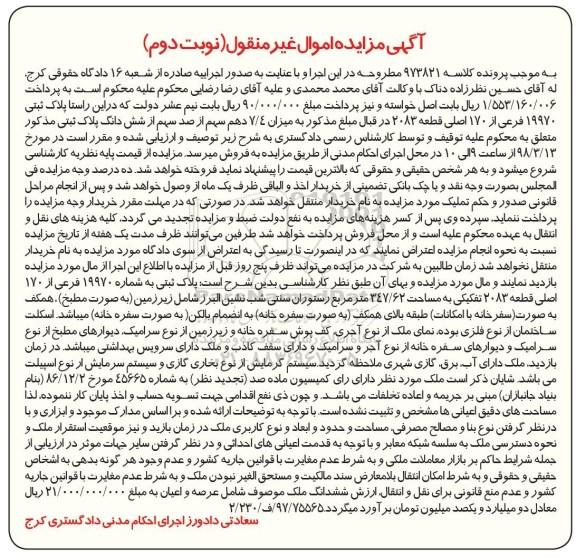 آگهی مزایده اموال غیر منقول (نوبت دوم)
به موجب پرونده کلاسه ۹۷۳۸۲۱ مطروحه در این اجرا و با عنایت به صدور اجراییه صادره از شعبه ۱۶ دادگاه حقوقی کرج،
له آقای حسین نظرزاده دناک با وکالت آقای محمد محمدی و علیه آقای رضا رضایی محکوم علیه محکوم است به پرداخت
۱/۵۵۳/۱۶۰/۰۰۶ ریال بابت اصل خواسته و نیز پرداخت مبلغ ۹۰/۰۰۰/۰۰۰ ریال بابت نیم عشر دولت که دراین راستا پلاک ثبتی
۱۹۹۷۰ فرعی از ۱۷۰ اصلی قطعه ۲۰۸۳ در قبال مبلغ مذکور به میزان ۷/۴ دهم سهم از صد سهم از شش دانگ پلاک ثبتی مذکور
متعلق به محکوم علیه توقیف و توسط کارشناس رسمی دادگستری به شرح زیر توصیف و ارزیابی شده و مقرر است در مورخ
۹۸/۳/۱۳ از ساعت ۹ الی ۱۰ در محل اجرای احکام مدنی از طریق مزایده به فروش میرسد. مزایده از قیمت پایه نظریه کارشناسی
شروع میشود و به هر شخص حقیقی و حقوقی که بالاترین قیمت را پیشنهاد نماید فروخته خواهد شد. ده درصد وجه مزایده فی
المجلس بصورت وجه نقد و یا چک بانکی تضمینی از خریدار اخذ و الباقی ظرف یک ماه از وصول خواهد شد و پس از انجام مراحل
قانونی صدور و حکم تملیک مورد مزایده به نام خریدار منتقل خواهد شد. در صورتی که در مهلت مقرر خریدار وجه مزایده را
پرداخت ننماید، سپرده وی پس از کسر هزینه‌های مزایده به نفع دولت ضبط و مزایده تجدید می گردد. کلیه هزینه های نقل و
انتقال به عهده محکوم علیه است و از محل فروش پرداخت خواهد شد طرفین می‌توانند ظرف مدت یک هفته از تاریخ مزایده
نسبت به نحوه انجام مزایده اعتراض نمایند که در اینصورت تا رسیدگی به اعتراض از سوی دادگاه مورد مزایده به نام خریدار
منتقل نخواهد شد زمان طالبین به شرکت در مزایده می‌تواند ظرف پنج روز قبل از مزایده با اطلاع این اجرا از مال مورد مزایده
بازدید نمایند و مال مورد مزایده و بهای آن طبق نظر کارشناسی بدین شرح است: پلاک ثبتی به شماره ۱۹۹۷۰ فرعی از ۱۷۰
اصلی قطعه ۲۰۸۳ تفکیکی به مساحت ۳۴۷/۶۲ متر مربع رستوران سنتی شب نشین البرز شامل زیرزمین (به صورت مطبخ)، همکف
به صورت (سفرخانه با امکانات) طبقه بالای همکف (به صورت سفره خانه) به انضمام بالکن (به صورت سفره خانه) میباشد. اسکلت
ساختمان از نوع فلزی بوده، نمای ملک از نوع آجری، کف پوش سفره خانه و زیرزمین از نوع سرامیک، دیوارهای مطبخ از نوع
سرامیک و دیوارهای سفره خانه از نوع آجر و سرامیک و دارای سقف کاذب و ملک دارای سرویس بهداشتی میباشد. در زمان
بازدید، ملک دارای آب، برق، گازی شهری ملاحظه گردید. سیستم گرمایش از نوع بخاری گازی و سیستم سرمایش از نوع اسپیلت
می باشد. شایان ذکر است ملک مورد نظر دارای رای کمیسیون ماده صد (تجدید نظر) به شماره ۴۵۶۶۵ مورخ ۸۶/۱۲/۲ (بنام
بنیاد جانبازان) مبنی بر جریمه و اعاده تخلفات می باشد. و چون ذی نفع اقدامی جهت تسویه حساب و اخذ پایان کار ننموده، لذا
مساحت های دقیق اعیانی ها مشخص و تثبیت نشده است. با توجه به توضیحات ارائه شده و بر اساس مدارک موجود و ابزاری و با
در نظر گرفتن نوع بنا و مصالح مصرفی، مساحت و حدود و ابعاد و نوع کاربری ملک در زمان بازدید و نیز موقعیت استقرار ملک و
نحوه دسترسی ملک به سلسله شبکه معابر و با توجه به قدمت اعیانی های احداثی و در نظر گرفتن سایر جهات موثر در ارزیابی از
جمله شرایط حاکم بر بازار معاملات ملکی و به شرط عدم مغایرت با قوانین جاریه کشور و عدم وجود هر گونه بدهی به اشخاص
حقیقی و حقوقی و به شرط امکان انتقال بلامعارض سند مالکیت و مستحق الغیر نبودن ملک و به شرط عدم مغایرت با قوانین جاریه
کشور و عدم منع قانونی برای نقل و انتقال، ارزش ششدانگ ملک موصوف شامل عرصه و اعیان به مبلغ ۲۱/۰۰۰/۰۰۰/۰۰۰ ریال
معادل دو میلیارد و یکصد میلیون تومان برآورد میگردد. ۹۷/۷۵۵۶۵/ف/۲/۲۳۰
سعادتی دادورز اجرای احکام مدنی دادگستری کرج